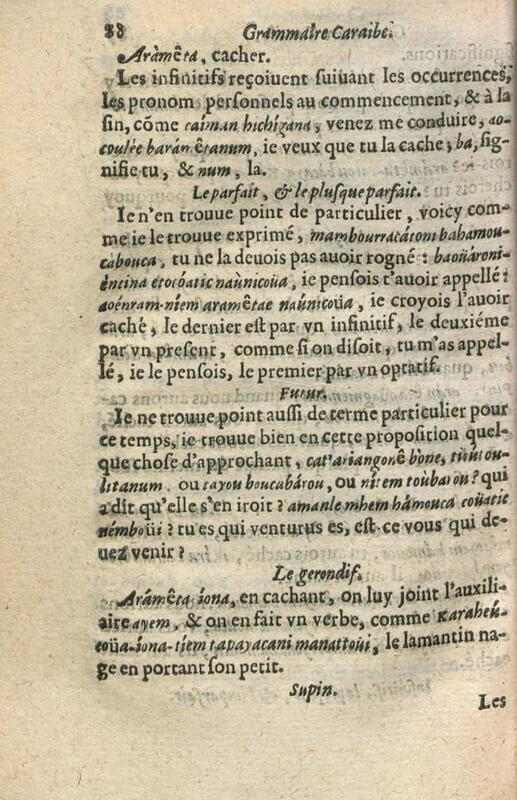 88 Grammaire Caraibe.
Aràmêta, cacher.
Les infinitifs reçoiuent suiuant les occurrences,
les pronom personnels au commencement, & à la
fin, cõme caíman hichigana, venez me conduire, ao-
coulée baram êtanum, ie veux que tu la cache; ba, sig-
nifie tu, & num, la.
Le parfait, & le plusque parfait.
Ie n'en trouue point de particulier, voicy com-
me ie le trouue exprimé, mambourracátoni bahamou-
cabouca, tu ne la deuois pas auoir rogné: baoüároni-
éntina etocóatic naùnicoüa, ie pensois t'auoir appellé:
aoénram-niem arametae naúnicoüa, ie croyois l'auoir
caché, le dernier est par vn infinitif, le deuxiéme
par vn present, comme si on disoit, tu m'as appel-
lé, ie le pensois, le premier par vn optatif.
Futur.
Ie ne trouue point aussi de terme particulier pour
ce temps, ie trouue bien en cette proposition quel-
que chose d'approchant, cat'ariangonê bone, tiúiou-
litanum. ou cayou boucabárou, ou nítem toùbarou? qui
a dit qu'elle s'en iroit? amanle mhem hámouca coüatic
némboüi? tu es qui venturus es, est ce vous qui de-
uez venir?
Le gerondif.
Arámêta iona, en cachant, on luy joint l'auxili-
aire ayem, & on en fait vn verbe, comme karaheú-
coüa-iona-tiem tapayacani manattoüi, le lamantin na-
ge en portant son petit.
Supin.
Les